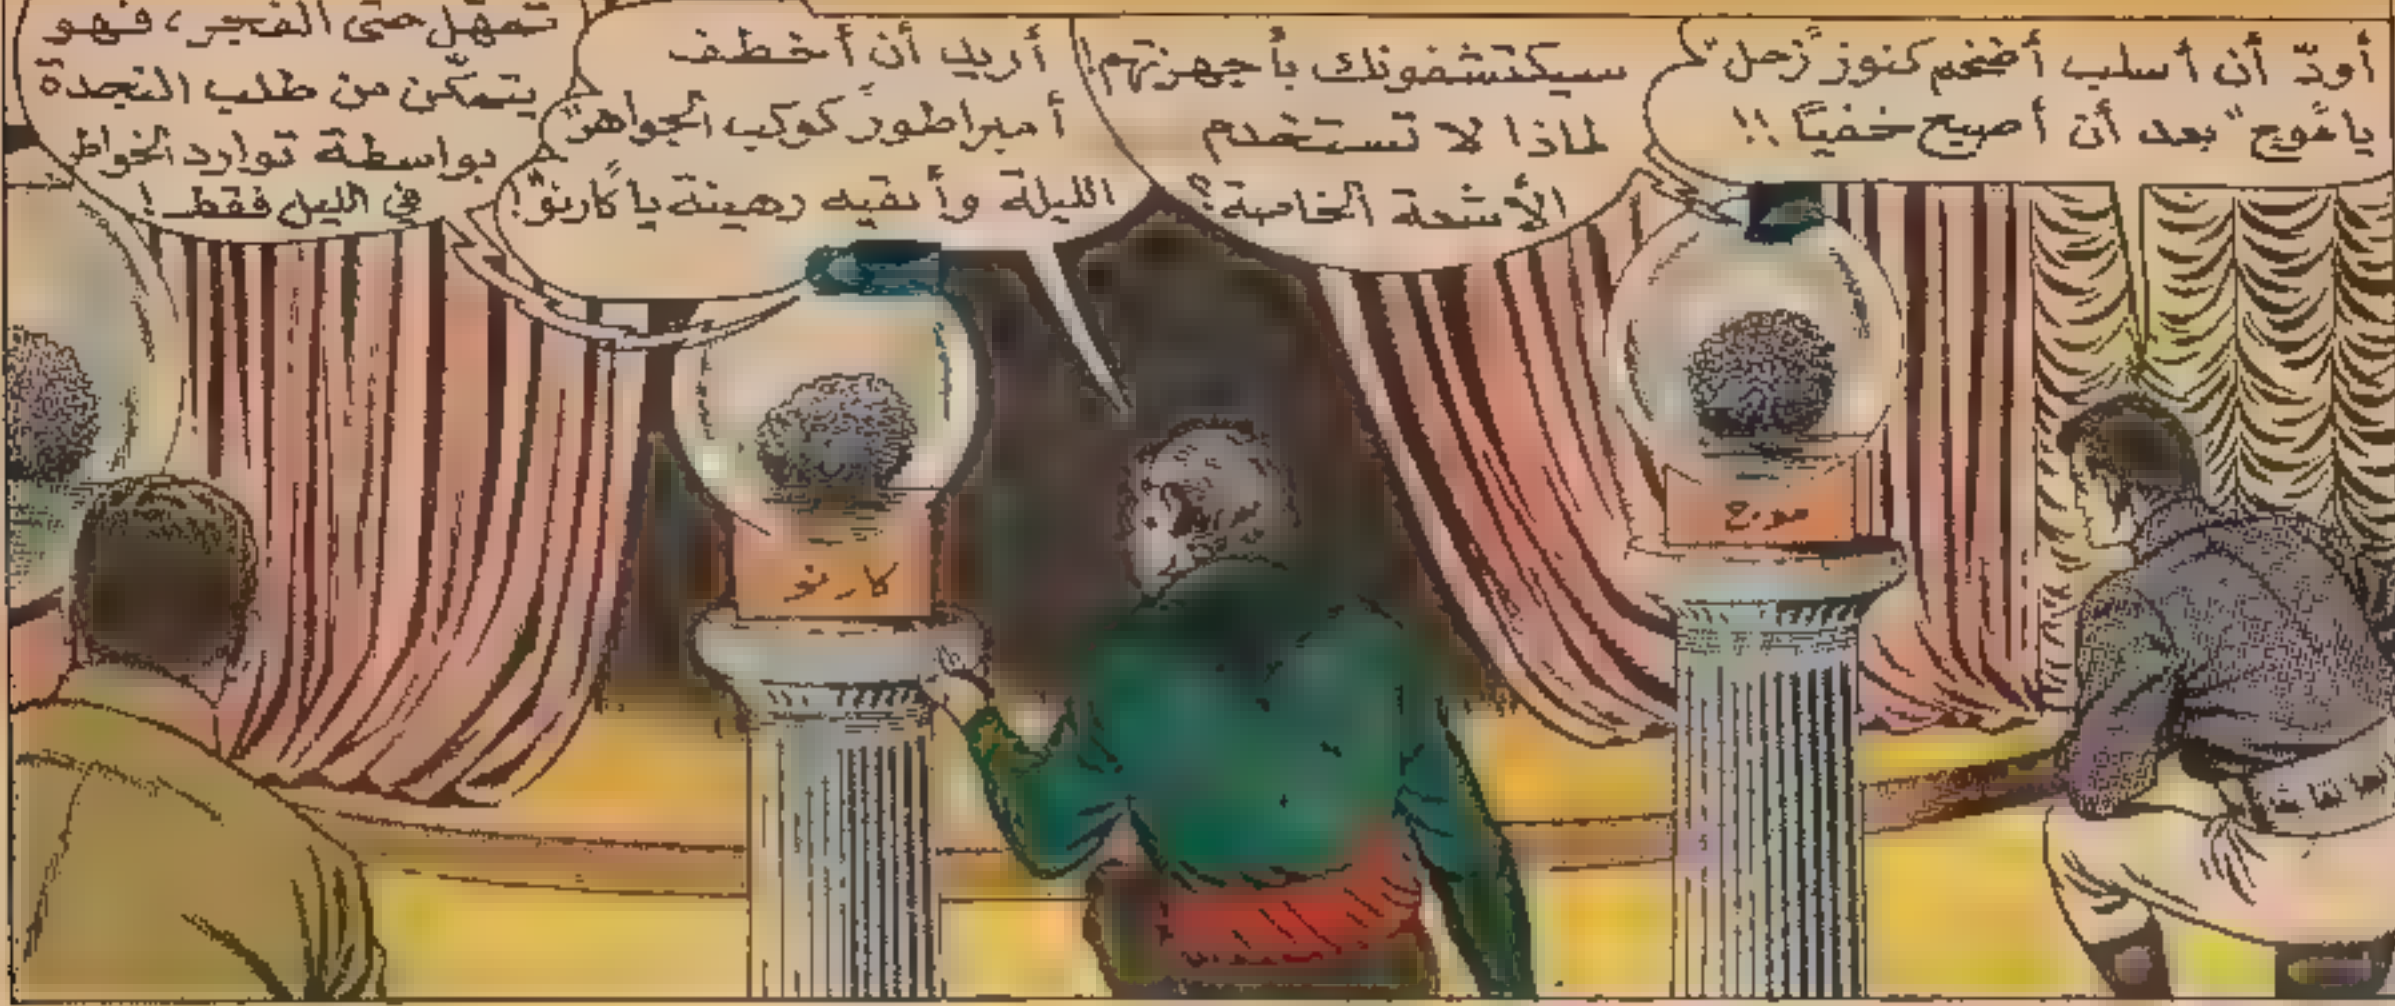 أودّ أن أسلب أضخم كنوز "زحل"
يا "موج" بعد أن أصبح خفياً !!
سيكتشفونك بأجهزتهم!
لماذا لا تستخدم
الأشعة الخاصة؟
أريد أن أخطف
أمبراطور "كوكب الجواهر"
الليلة وأبقيه رهينة يا "كارنو"!
تمهّل حتى الفجر، فهو
يتمكّن من طلب النجدة
بواسطة توارد الخواطر
في الليل فقط!
موج
كارنو